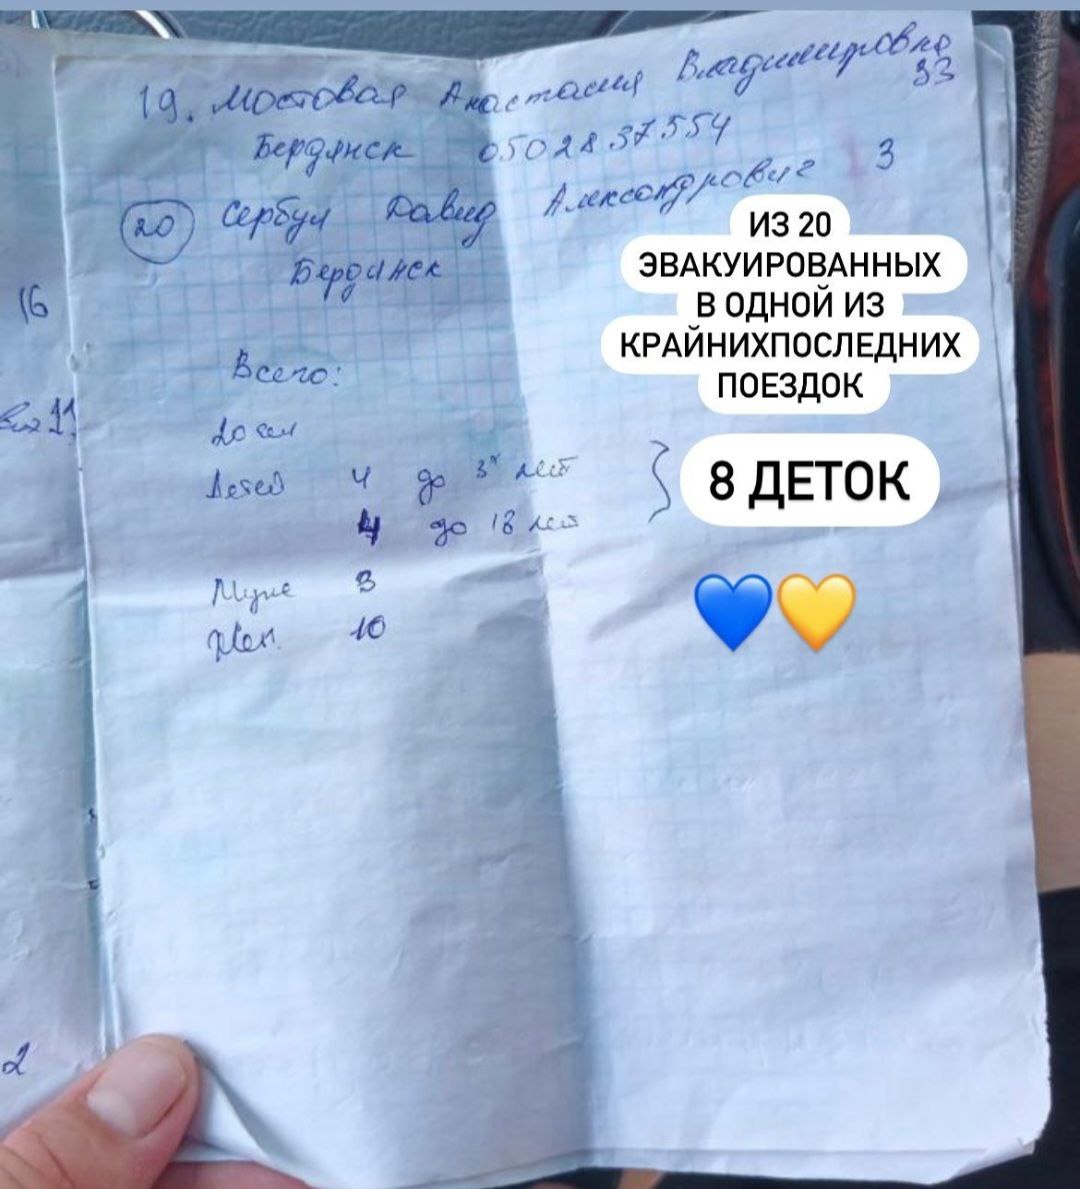 19. Мостовая Анастасия Владимировна 33
Бердянск 0502837554
20 Сербул Давид Александрович 3
Бердянск
16
11
Всего:
20 чел
Детей 4 до 3х лет
4 до 18 лет
Муж 3
Жен. 10
2
ИЗ 20
ЭВАКУИРОВАННЫХ
В ОДНОЙ ИЗ
КРАЙНИХПОСЛЕДНИХ
ПОЕЗДОК
8 ДЕТОК